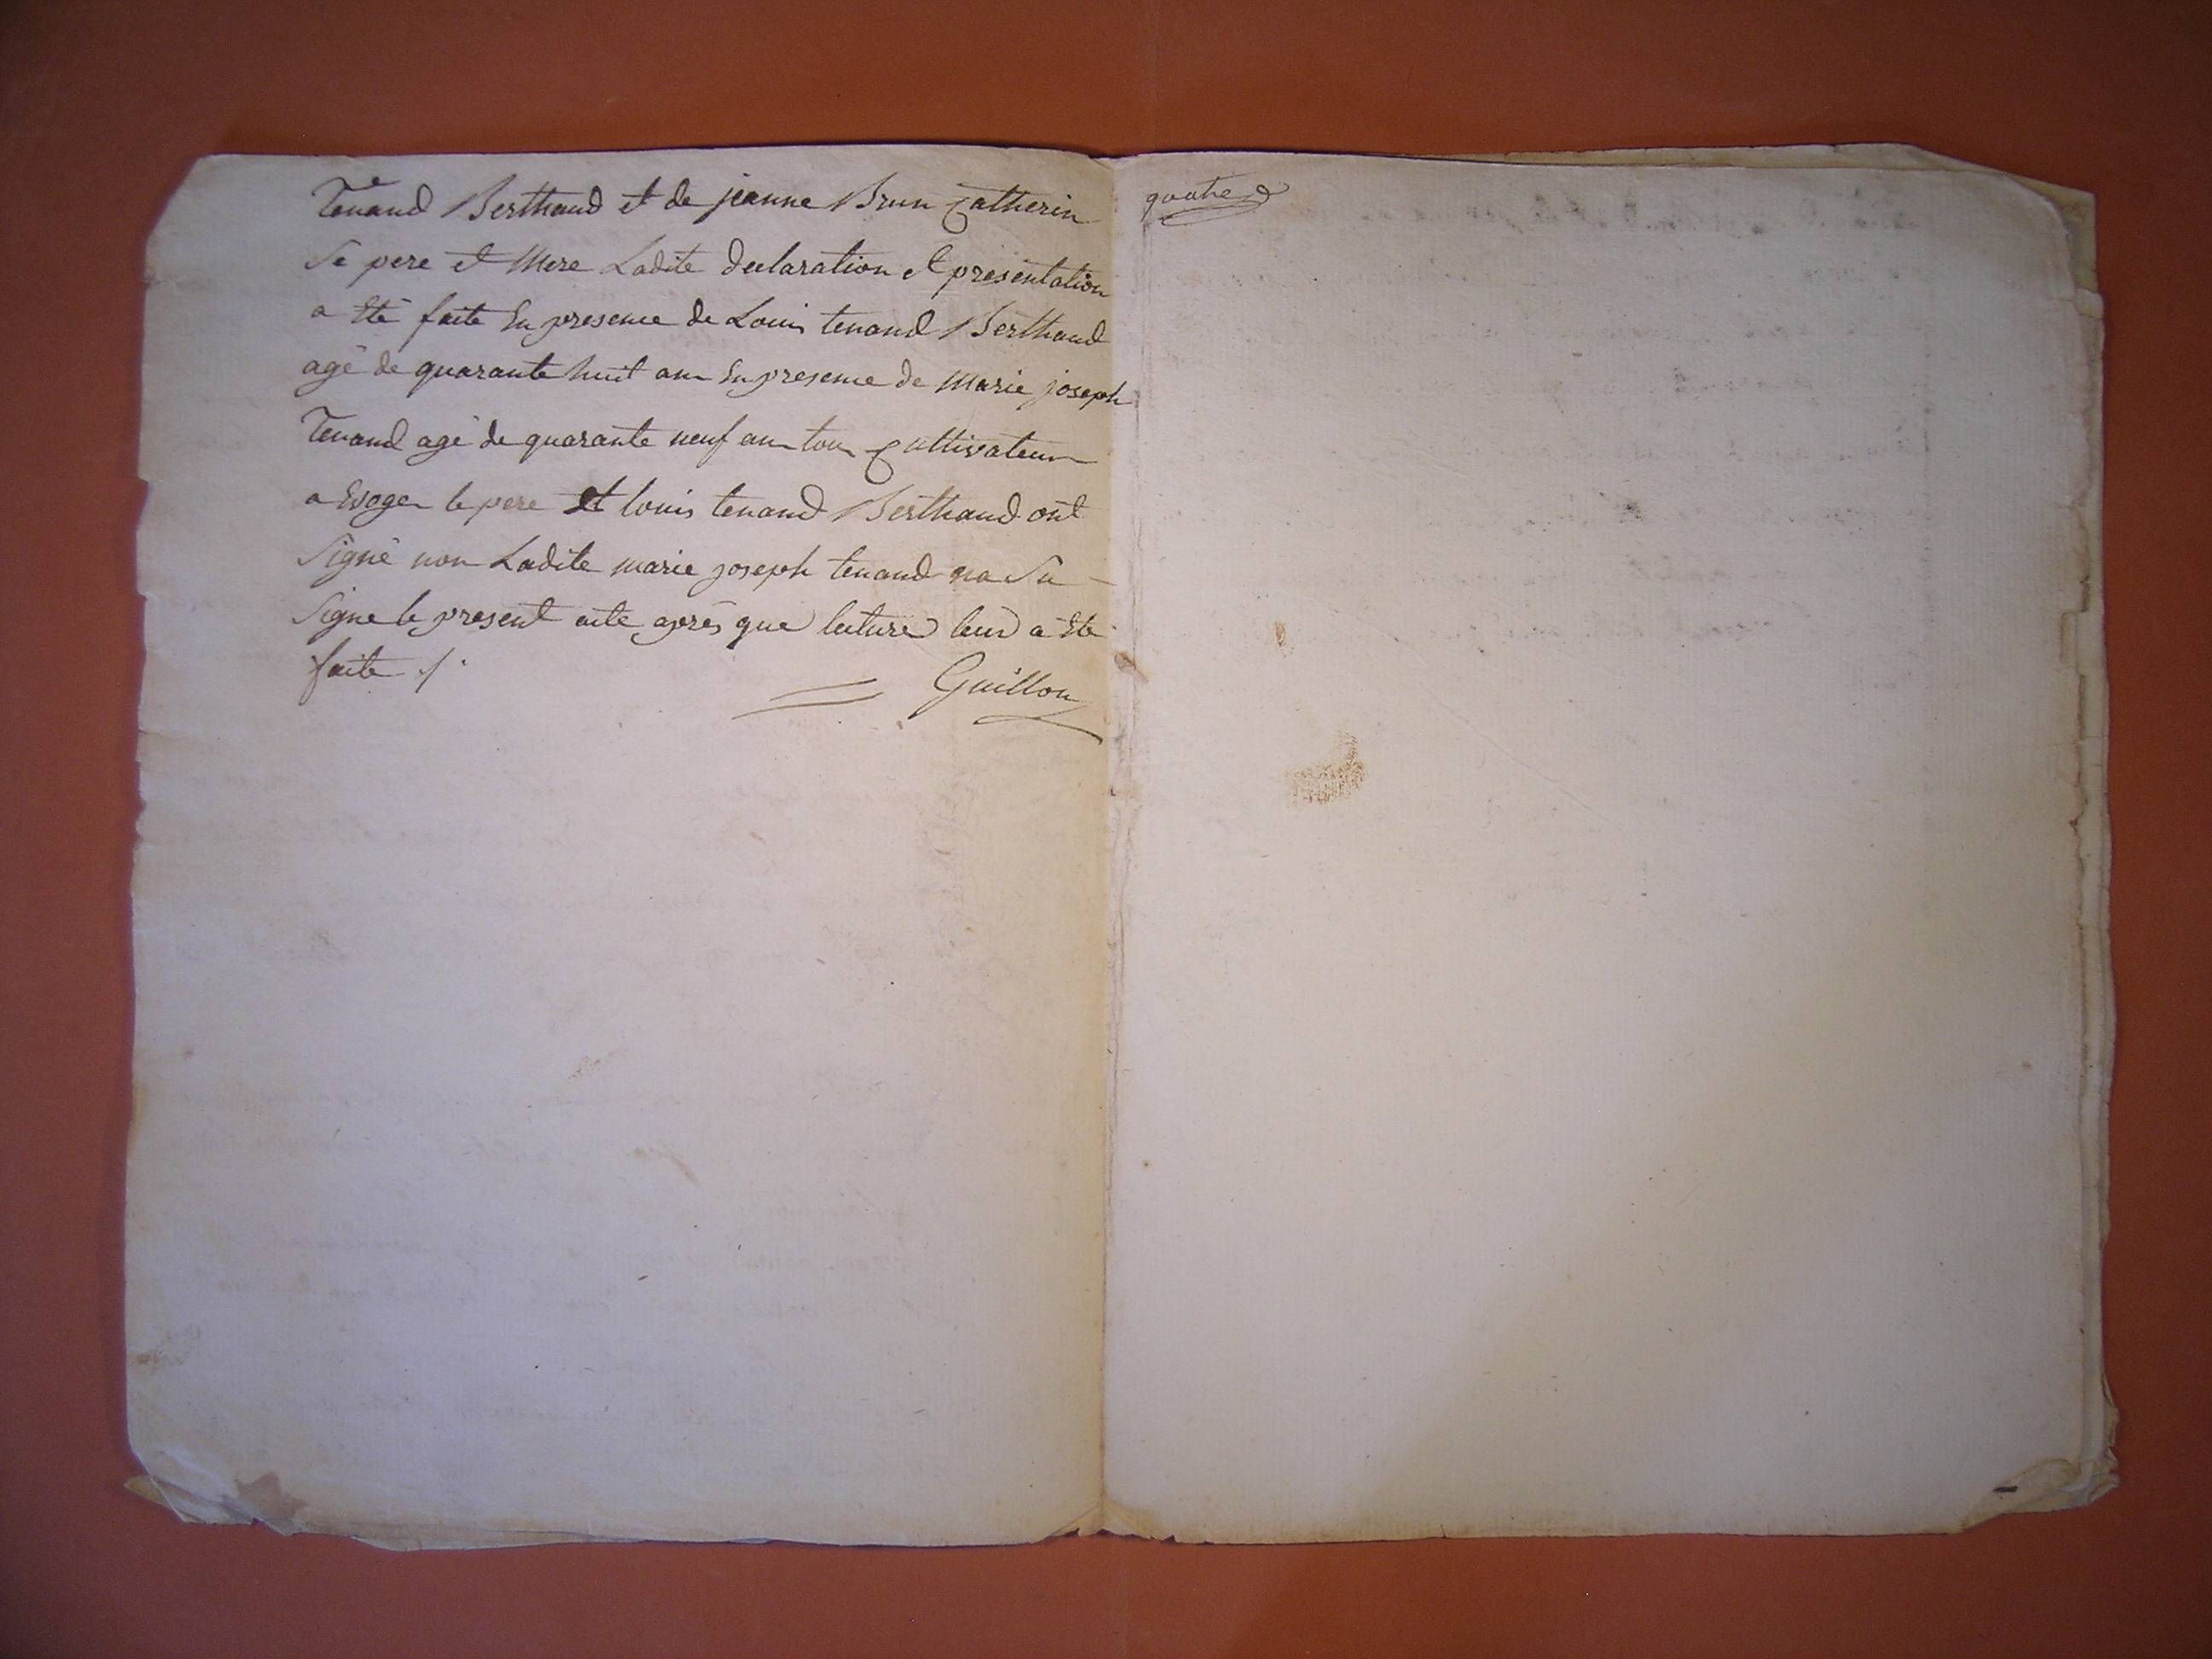 Tenand Berthaud et de jeanne Brun Catherin
Se pere et Mere Ladite declaration et presentation
a Eté faite En presence de Louis tenand Berthaud
agé de quarante huit ans En presence de Marie joseph
Tenand agé de quarante neuf ans tous Cultivateurs
a le pere Et louis tenand Berthaud ont
Signé non Ladite marie joseph tenand na Su
Signe le present acte après que lecture leur a Ete
faite ./.
Guillon
quatre